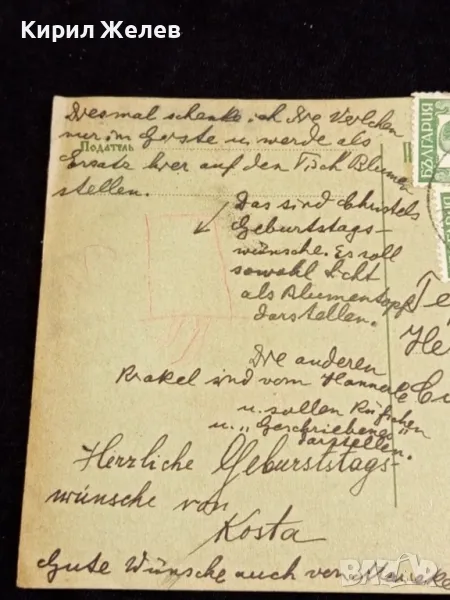 Кирил Желев
Diesmal schenke ich Dir Veilchen
nur im Geiste u. werde als
Податель
Ersatz hier auf den Tisch Blumen
stellen.
Das sind Christels
Geburtstags-
wünsche. Es soll
sowohl Licht
als Blumentopf
darstellen.
Die anderen
Krakel sind vom Hannele
u. sollen
u. „Geschriebenes"
darstellen.
Herzliche Geburtstags-
wünsche von
Kosta
Gute Wünsche auch von
БЪЛГАРИЯ
BAZAR